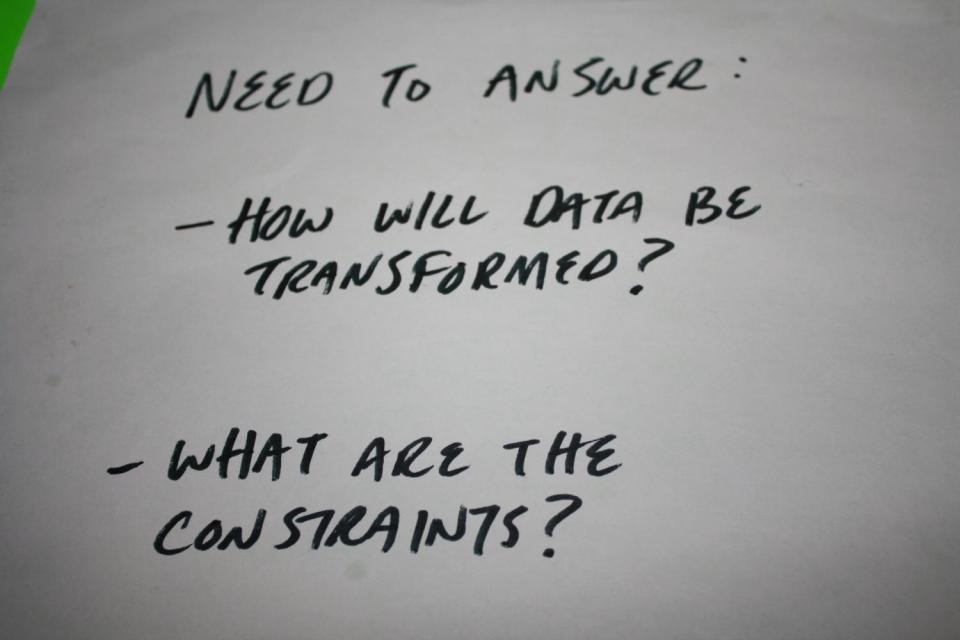 NEED TO ANSWER:
- HOW WILL DATA BE
TRANSFORMED?
- WHAT ARE THE
CONSTRAINTS?